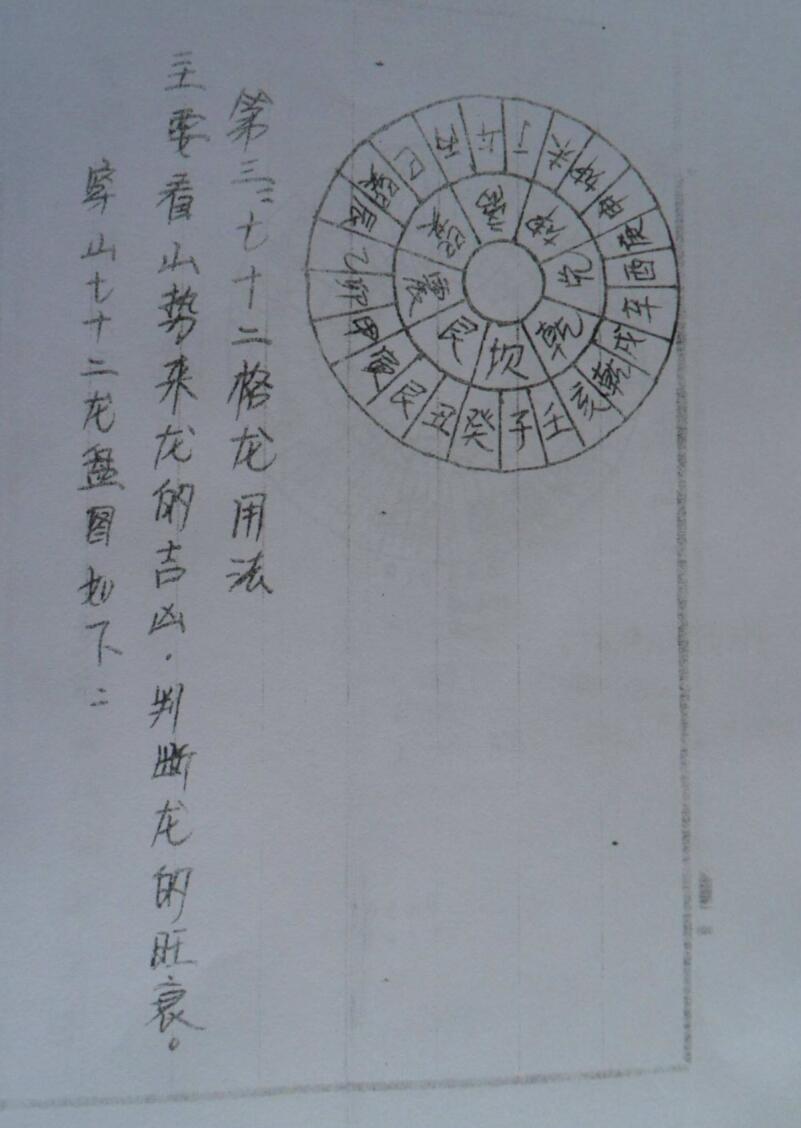 第三:七十二格龙用法
主要看山势来龙的吉凶.判断龙的旺衰。
穿山七十二龙盘图如下:
离
坤
兑
乾
坎
艮
震
巽
午
丁
未
坤
申
庚
酉
辛
戌
乾
亥
壬
子
癸
丑
艮
寅
甲
卯
乙
辰
巽
巳
丙